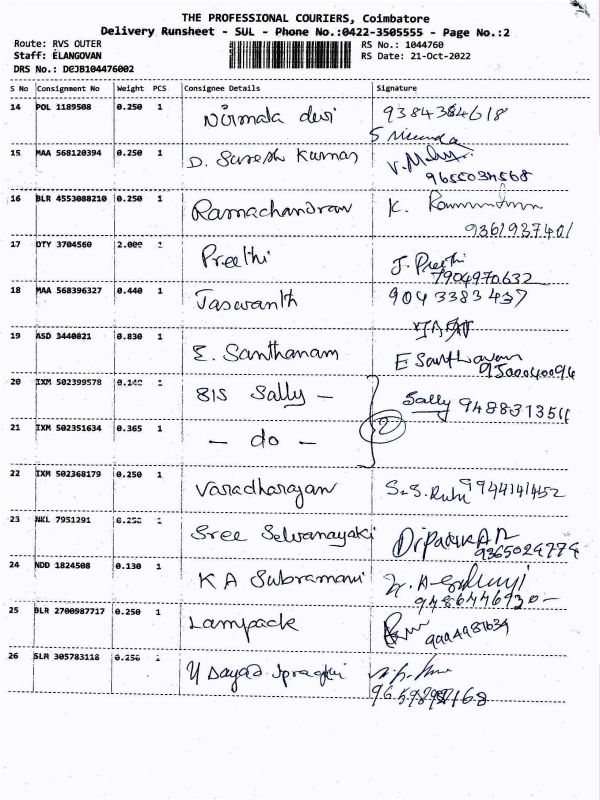 THE PROFESSIONAL COURIERS, Coimbatore
Delivery Runsheet - SUL - Phone No.:0422-3505555 - Page No.:2
Route: RVS OUTER
RS No.: 1044760
Staff: ELANGOVAN
RS Date: 21-Oct-2022
DRS No.: DCJB104476002
S No Consignment No Weight PCS Consignee Details Signature
14 POL 1189508 0.250 1 Nirmala devi 9384364618
15 MAA 568120394 0.250 1 D. Suresh Kumar
9655034568
16 BLR 4553088210 0.250 1 Ramachandran K.
9361937401
17 DTY 3704560 2.000 Preethi J. Preethi
7904970632
18 MAA 568396327 0.440 1 Jaswanth 9043383437
19 ASD 3440821 0.830 1 E. Santhanam E Santhanam
20 IXM 502399578 0.140 1 815 Sally - Sally
21 IXM 502351634 0.365 1 - do - 2
22 IXM 502368179 0.250 1 Varadharajan 9944141452
23 NKL 7951291 1 Sree Selvanayaki
24 NDD 1824508 0.130 1 K A Subramani
25 BLR 2700987717 0.250 1 Lampack
26 SLM 305783118 0.250